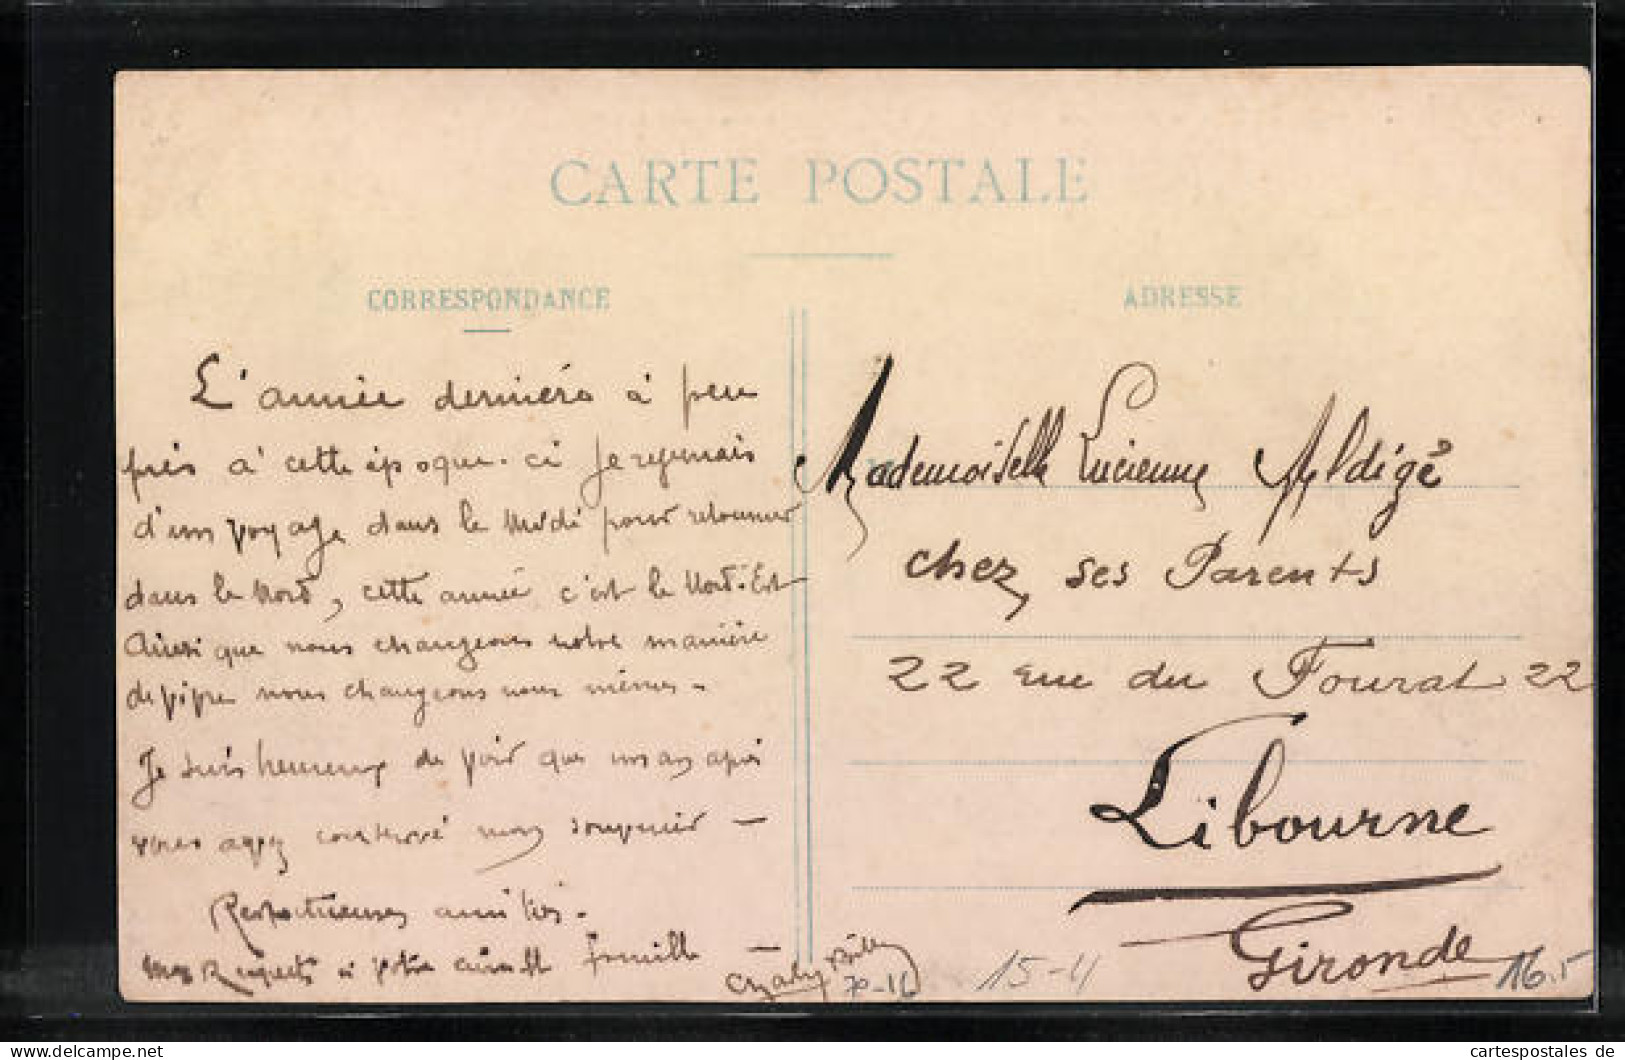 CARTE POSTALE
CORRESPONDANCE
ADRESSE
L'année dernière à peu
près à cette époque-ci je revenais
d'un voyage dans le Midi pour retourner
dans le Nord, cette année c'est le Nord-Est
Ainsi que nous changeons notre manière
de vivre nous changeons nous mêmes.
Je suis heureux de voir que un an après
vous avez conservé mon souvenir —
Respectueuses amitiés.
Mes Respects à votre aimable famille —
Mademoiselle Lucienne Aldigé
chez ses Parents
22 rue du Fourat 22
Libourne
Gironde
15-4
16.5
cartespostales de